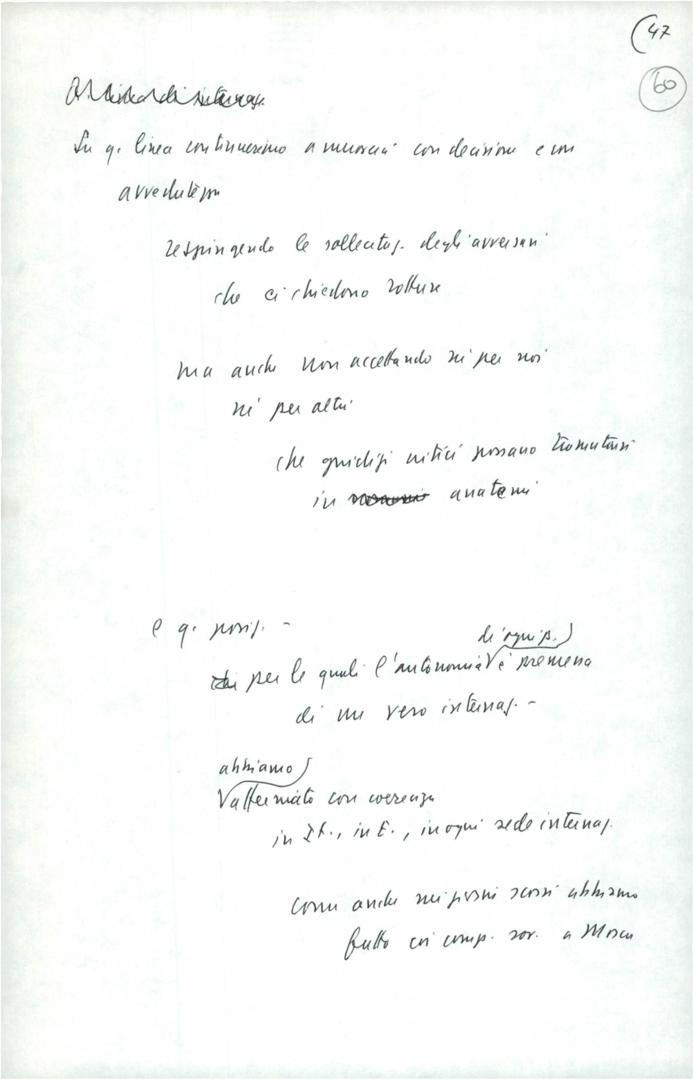 (47
60
Su q. linea continueremo a muoverci con decisione e con
avvedutezza
respingendo le sollecitaz. degli avversari
che ci chiedono rotture
ma anche non accettando né per noi
né per altri
che giudizi critici possano tramutarsi
in anatemi
e q. posiz. -
di ogni p.
per le quali l'autonomia è premessa
di un vero internaz. -
abbiamo
affermato con coerenza
in It., in E., in ogni sede internaz.
come anche nei giorni scorsi abbiamo
fatto coi comp. sov. a Mosca